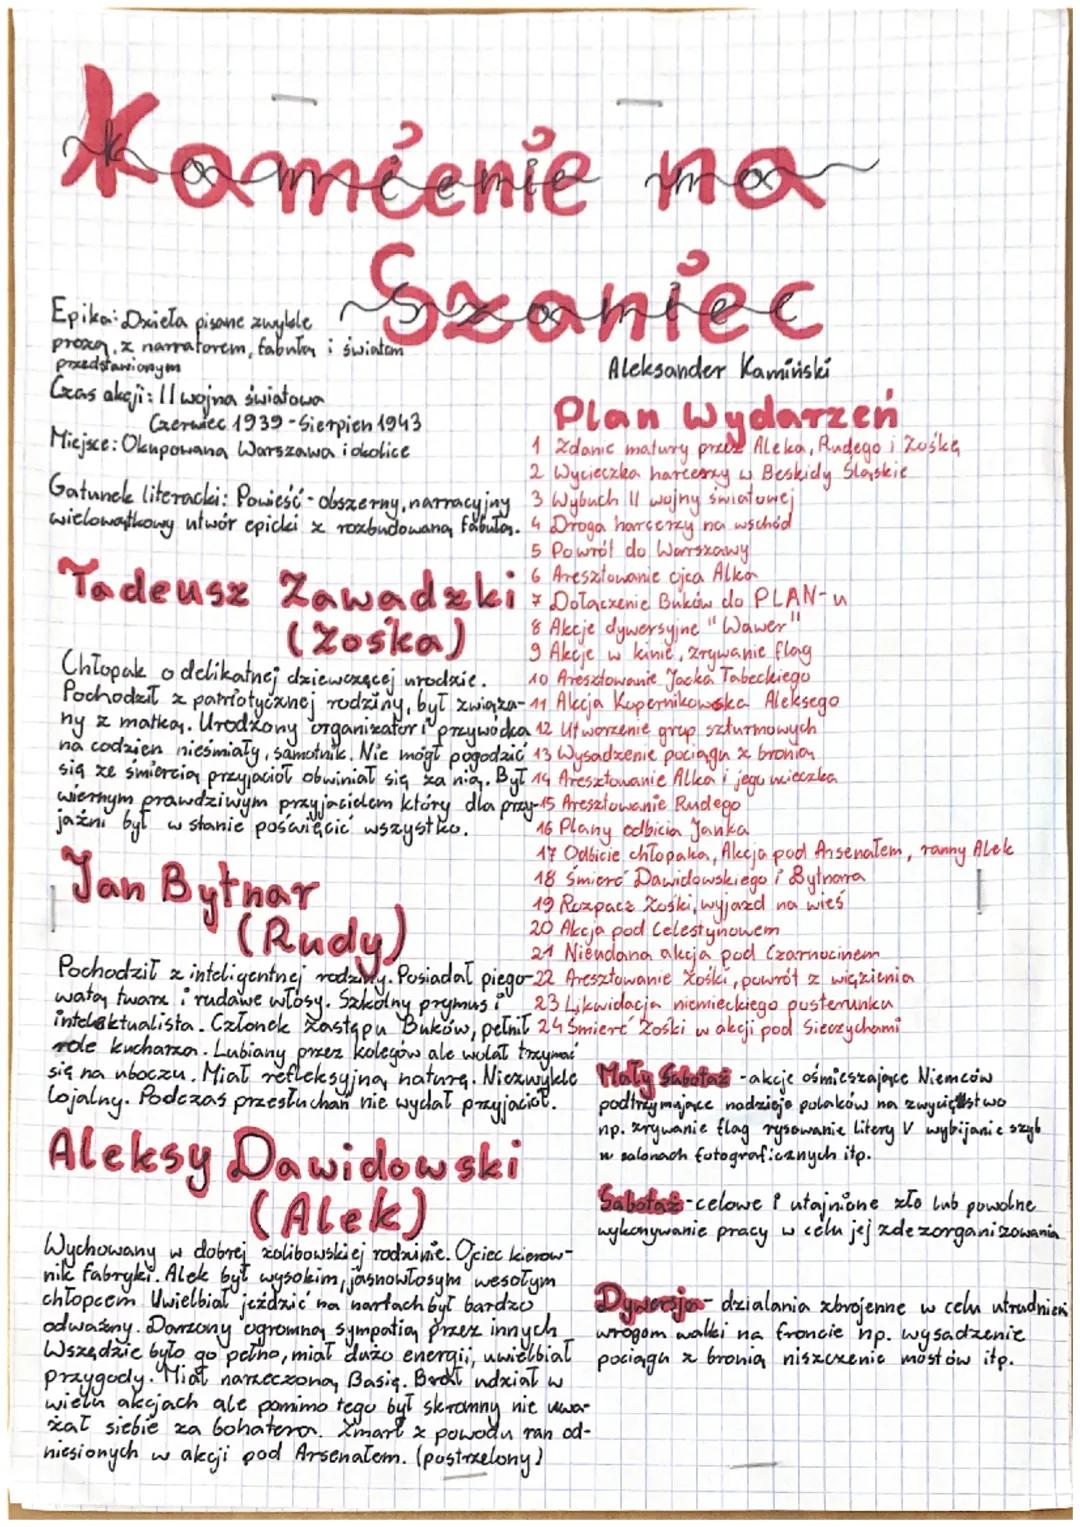 Kamienie na
Szaniec
Aleksander Kamiński
Epika: Dzieła pisane zwykle
prozą, z narratorem, fabułą i światem
przedstawionym
Czas akcji: II wojna światowa
Czerwiec 1939 - Sierpień 1943
Miejsce: Okupowana Warszawa i okolice
Gatunek literacki: Powieść - obszerny, narracyjny
wielowątkowy utwór epicki z rozbudowaną fabułą.
Tadeusz Zawadzki
(Zośka)
Chłopak o delikatnej dziewczęcej urodzie.
Pochodził z patriotycznej rodziny, był związa-
ny z matką. Urodzony organizator i przywódca
na codzien nieśmiały, samotnik. Nie mógł pogodzić
się ze śmiercią przyjaciół obwiniał się za nią. Był
wiernym prawdziwym przyjacielem który dla przy-
jaźni był w stanie poświęcić wszystko.
Jan Bytnar
(Rudy)
Pochodził z inteligentnej rodziny. Posiadał piego-
watą twarz i rudawe włosy. Szkolny prymus i
intelektualista. Członek Zastępu Buków, pełnił
role kucharza. Lubiany przez kolegów ale wolał trzymać
się na uboczu. Miał refleksyjną naturę. Niezwykle
lojalny. Podczas przesłuchań nie wydał przyjaciół.
Aleksy Dawidowski
(Alek)
Wychowany w dobrej żolibowskiej rodzinie. Ojciec kierow-
nik fabryki. Alek był wysokim, jasnowłosym wesołym
chłopcem. Uwielbiał jeździć na nartach był bardzo
odważny. Darzony ogromną sympatią przez innych
Wszędzie było go pełno, miał dużo energii, uwielbiał
przygody. Miał narzeczoną Basię. Brał udział w
wielu akcjach ale pomimo tego był skromny nie uwa-
żał siebie za bohatera. Zmarł z powodu ran od-
niesionych w akcji pod Arsenałem. (postrzelony)
Plan Wydarzeń
1 Zdanie matury przez Aleka, Rudego i Zośkę
2 Wycieczka harcerzy w Beskidy Śląskie
3 Wybuch II wojny światowej
4 Droga harcerzy na wschód
5 Powrót do Warszawy
6 Aresztowanie ojca Alka
7 Dołączenie Buków do PLAN-u
8 Akcje dywersyjne "Wawer"
9 Akcje w kinie, zrywanie flag
10 Aresztowanie Jacka Tabeckiego
11 Akcja Kopernikowska Aleksego
12 Utworzenie grup szturmowych
13 Wysadzenie pociągu z bronią
14 Aresztowanie Alka i jego ucieczka
15 Aresztowanie Rudego
16 Plany odbicia Janka
17 Odbicie chłopaka, Akcja pod Arsenałem, ranny Alek
18 Śmierć Dawidowskiego i Bytnara
19 Rozpacz Zośki, wyjazd na wieś
20 Akcja pod Celestynowem
21 Nieudana akcja pod Czarnocinem
22 Aresztowanie Zośki, powrót z więzienia
23 Likwidacja niemieckiego posterunku
24 Śmierć Zośki w akcji pod Sieczychami
Mały Sabotaż - akcje ośmieszające Niemców
podtrzymające nadzieje polaków na zwycięstwo
np. zrywanie flag rysowanie litery V wybijanie szyb
w salonach fotograficznych itp.
Sabotaż - celowe i utajnione zło lub powolne
wykonywanie pracy w celu jej zdezorganizowania
Dywersja - działania zbrojenne w celu utrudnień
wrogom walki na froncie np. wysadzenie
pociągu z bronią niszczenie mostów itp.